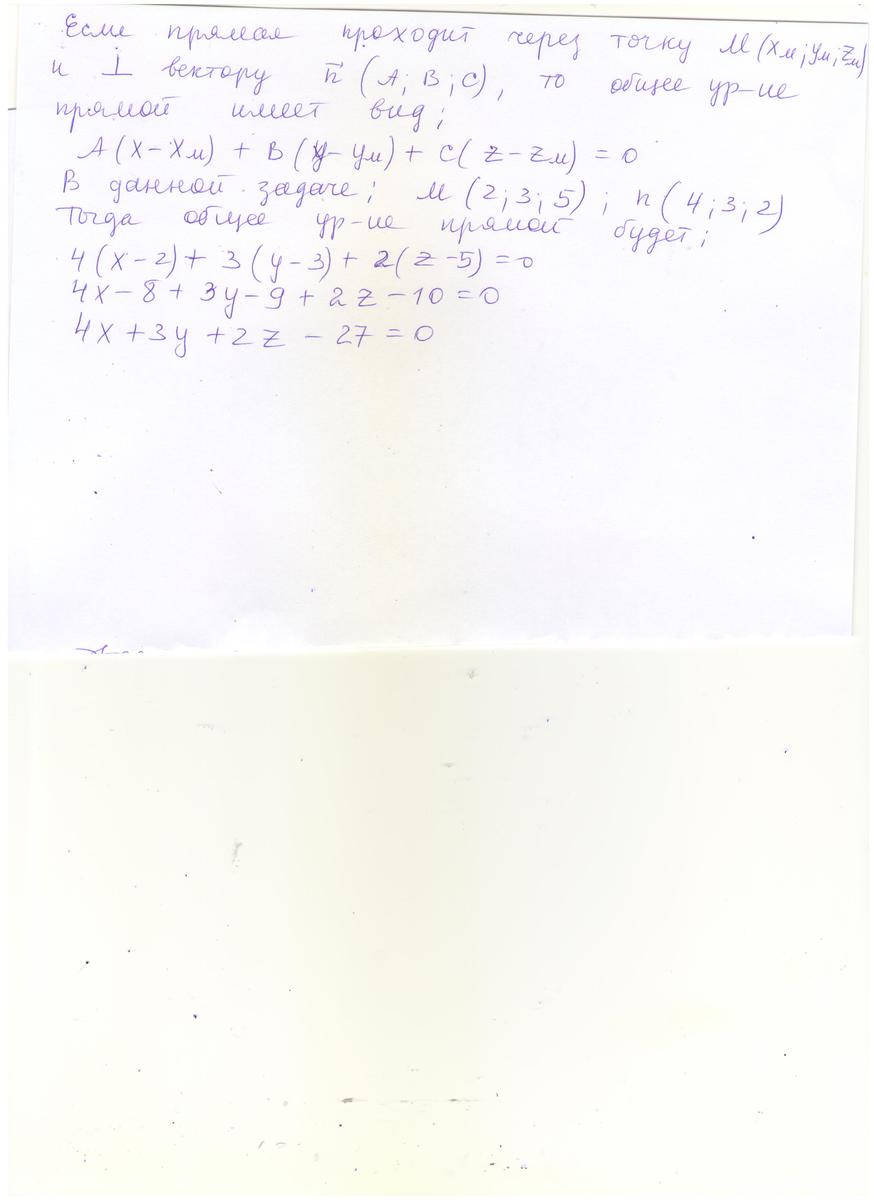 Если прямая проходит через точку М(Xм; Yм; Zм)
и ⊥ вектору n⃗ (A; B; C), то общее ур-ие
прямой имеет вид;
A(X-Xм) + B(y-yм) + C(z-zм) = 0
В данной задаче; М(2; 3; 5); n(4; 3; 2)
Тогда общее ур-ие прямой будет;
4(x-2) + 3(y-3) + 2(z-5) = 0
4x - 8 + 3y - 9 + 2z - 10 = 0
4x + 3y + 2z - 27 = 0